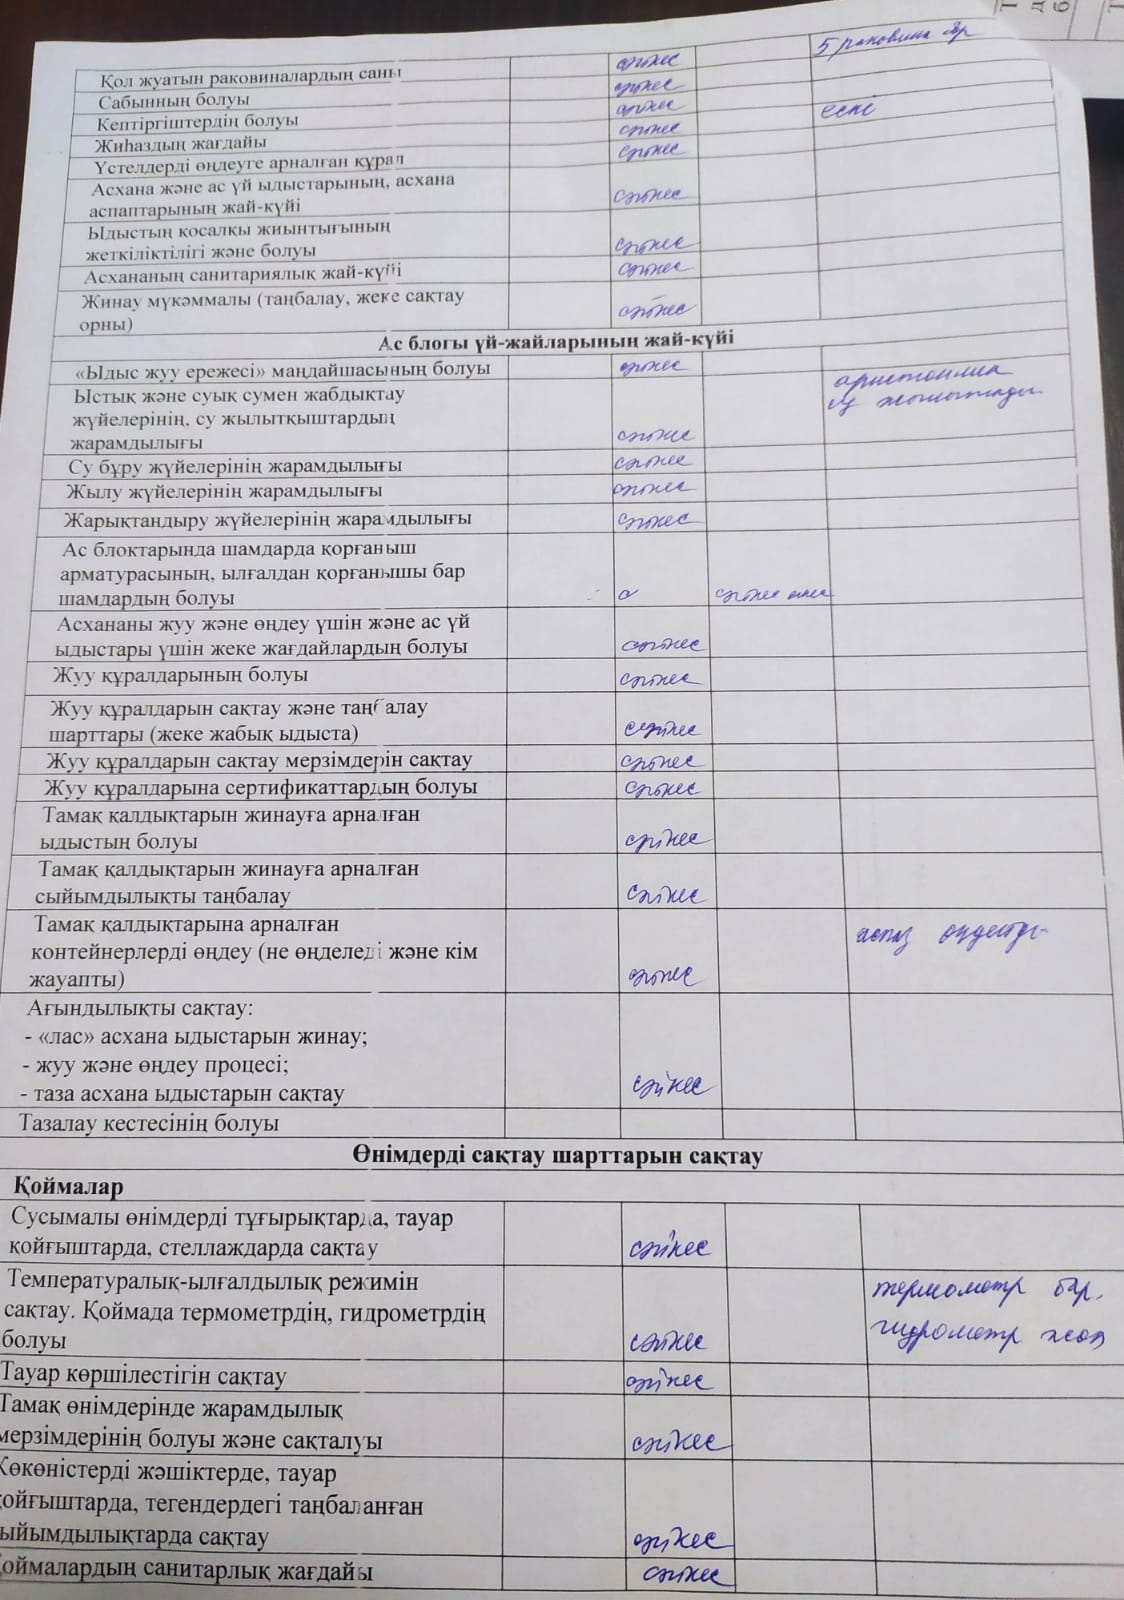 Қол жуатын раковиналардың саны сәйкес 5 раковина бар
Сабынның болуы сәйкес
Кептіргіштердің болуы сәйкес ескі
Жиһаздың жағдайы сәйкес
Үстелдерді өңдеуге арналған құрал сәйкес
Асхана және ас үй ыдыстарының, асхана
аспаптарының жай-күйі сәйкес
Ыдыстың қосалқы жиынтығының
жеткіліктілігі және болуы сәйкес
Асхананың санитариялық жай-күйі сәйкес
Жинау мүкәммалы (таңбалау, жеке сақтау
орны) сәйкес
Ас блогы үй-жайларының жай-күйі
«Ыдыс жуу ережесі» маңдайшасының болуы сәйкес
Ыстық және суық сумен жабдықтау
жүйелерінің, су жылытқыштардың
жарамдылығы сәйкес
су
Су бұру жүйелерінің жарамдылығы сәйкес
Жылу жүйелерінің жарамдылығы сәйкес
Жарықтандыру жүйелерінің жарамдылығы сәйкес
Ас блоктарында шамдарда қорғаныш
арматурасының, ылғалдан қорғанышы бар
шамдардың болуы сәйкес емес
Асхананы жуу және өңдеу үшін және ас үй
ыдыстары үшін жеке жағдайлардың болуы сәйкес
Жуу құралдарының болуы сәйкес
Жуу құралдарын сақтау және таңбалау
шарттары (жеке жабық ыдыста) сәйкес
Жуу құралдарын сақтау мерзімдерін сақтау сәйкес
Жуу құралдарына сертификаттардың болуы сәйкес
Тамақ қалдықтарын жинауға арналған
ыдыстың болуы сәйкес
Тамақ қалдықтарын жинауға арналған
сыйымдылықты таңбалау сәйкес
Тамақ қалдықтарына арналған
контейнерлерді өңдеу (не өңделеді және кім аспаз өңдейді
жауапты) сәйкес
Ағындылықты сақтау:
- «лас» асхана ыдыстарын жинау;
- жуу және өңдеу процесі;
- таза асхана ыдыстарын сақтау сәйкес
Тазалау кестесінің болуы
Өнімдерді сақтау шарттарын сақтау
Қоймалар
Сусымалы өнімдерді тұғырықтарда, тауар
қойғыштарда, стеллаждарда сақтау сәйкес
Температуралық-ылғалдылық режимін термометр бар,
сақтау. Қоймада термометрдің, гидрометрдің гидрометр жоқ
болуы сәйкес
Тауар көршілестігін сақтау сәйкес
Тамақ өнімдерінде жарамдылық
мерзімдерінің болуы және сақталуы сәйкес
Көкөністерді жәшіктерде, тауар
қойғыштарда, тегендердегі таңбаланған
сыйымдылықтарда сақтау сәйкес
Қоймалардың санитарлық жағдайы сәйкес